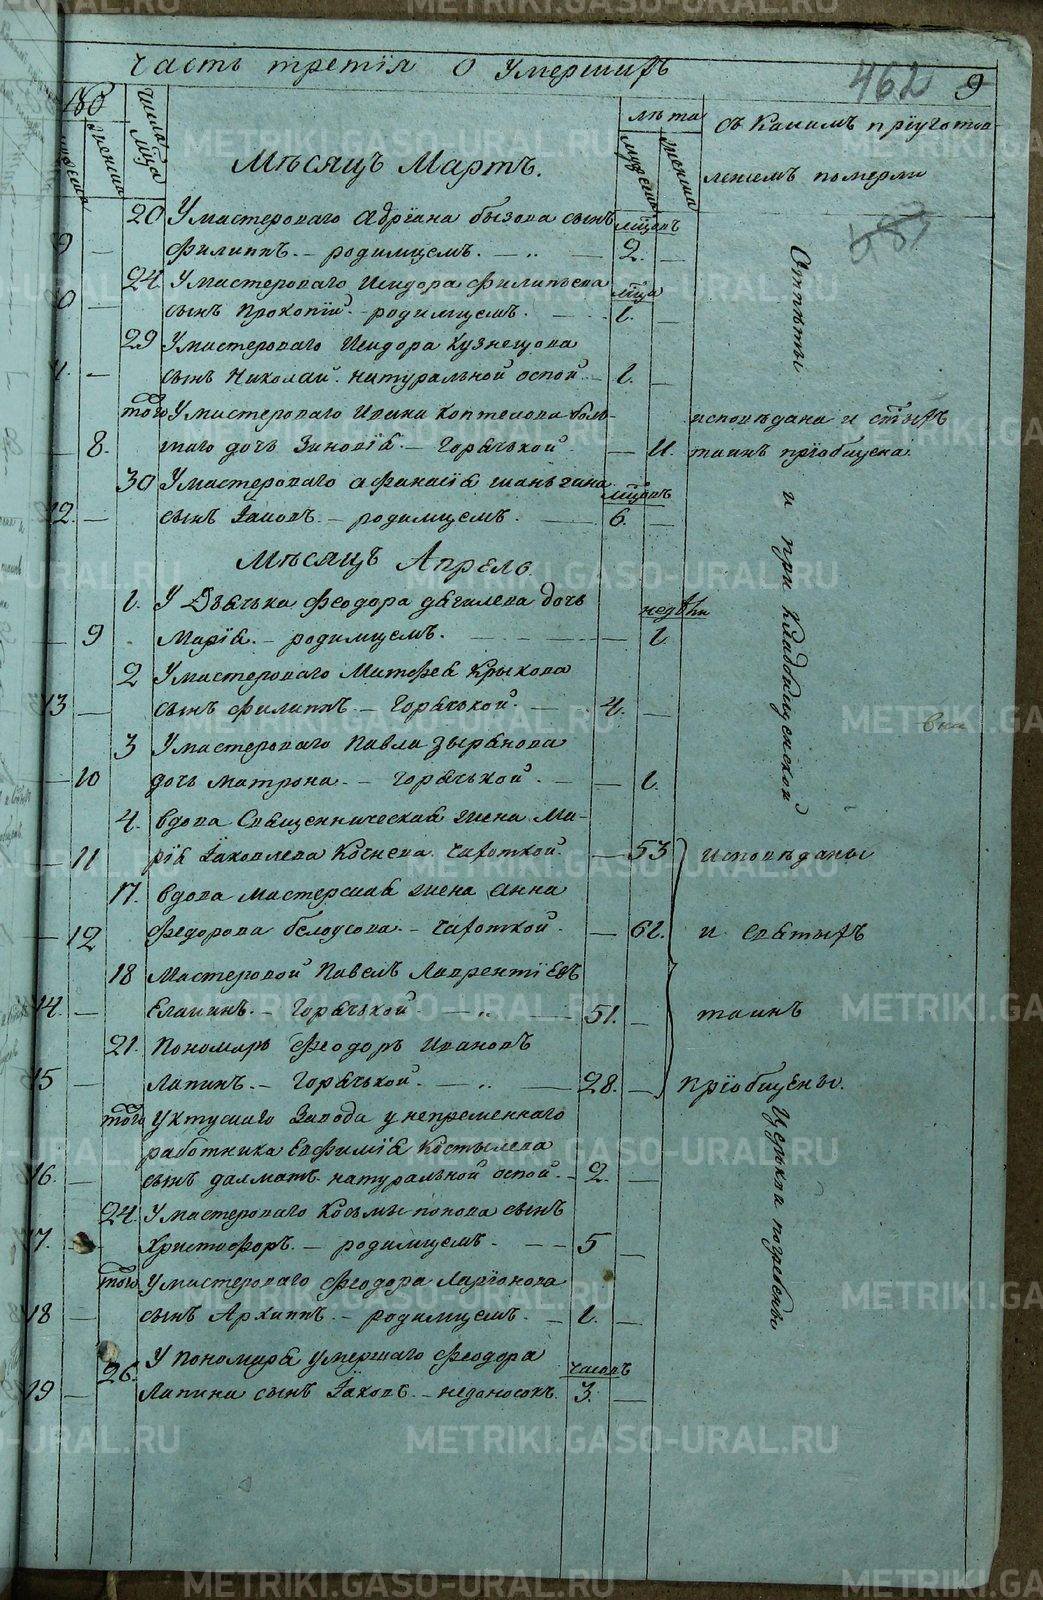 Часть третія О Умершихъ
462
9
числа мца
женска
лѣта
мужеска
женска
съ какимъ пріуготов-
леніемъ померли
Мѣсяцъ Мартъ.
20 У мастероваго Адріана бызова сынъ мцовъ
9 — Филиппъ. — родимцемъ. — 2. —
24 У мастероваго Исидора Филипьева мца
0 — сынъ Прокопій. родимцемъ. — 1. —
29 У мастероваго Исидора Кузнецова
— сынъ Николай. натуральной оспой. — 1. —
того У мастероваго Ивана Коптелова боль- исповѣдана и стыхъ
— 8. шаго дочь Зиновія. — Горячькой. — 11. таинъ пріобщена.
30 У мастероваго Афанасія шаньгина мцовъ
12. — сынъ Іаковъ. — родимцемъ. — 6. —
Мѣсяцъ Апрель.
1. У Дьячька Феодора дягилева дочь недѣли
— 9 Марія. — родимцемъ. — 1.
2 У мастероваго Матфея Крыкова
13 — сынъ Филиппъ. — Горячькой. — 4. —
3 У мастероваго Павла Зырянова
— 10 дочь Матрона. — Горячькой. — 1.
4. вдова Священническая жена Ма-
— 11 рія Іаковлева Кочнева. Чахоткой. — 53 исповѣданы
17. вдова мастерская жена Анна
— 12 Федорова белоусова. — Чахоткой. — 61. и святыхъ
18 Мастеровой Павелъ Лаврентіевъ
14. — Елапинъ. — Горячькой. — 51. — таинъ
21. Пономарь Феодоръ Ивановъ
15 — Лапинъ. — Горячькой. — 28. — пріобщены.
того Уктускаго Завода у непременнаго
работника Евфимія Костылева
16. — сынъ далматъ. натуральной оспой. — 2. —
24. У мастероваго Косьмы попова сынъ
17. — Христофоръ. — родимцемъ. — 5 —
того У мастероваго Феодора Ларіонова
18 — сынъ Архиппъ. — родимцемъ. — 1. —
26. У пономаря умершаго Феодора часовъ
19 — Лапина сынъ Іаковъ. — недоносокъ. 3. —
Отпѣты и при Кладбищенской
Церкви погребены
METRIKI.GASO-URAL.RU